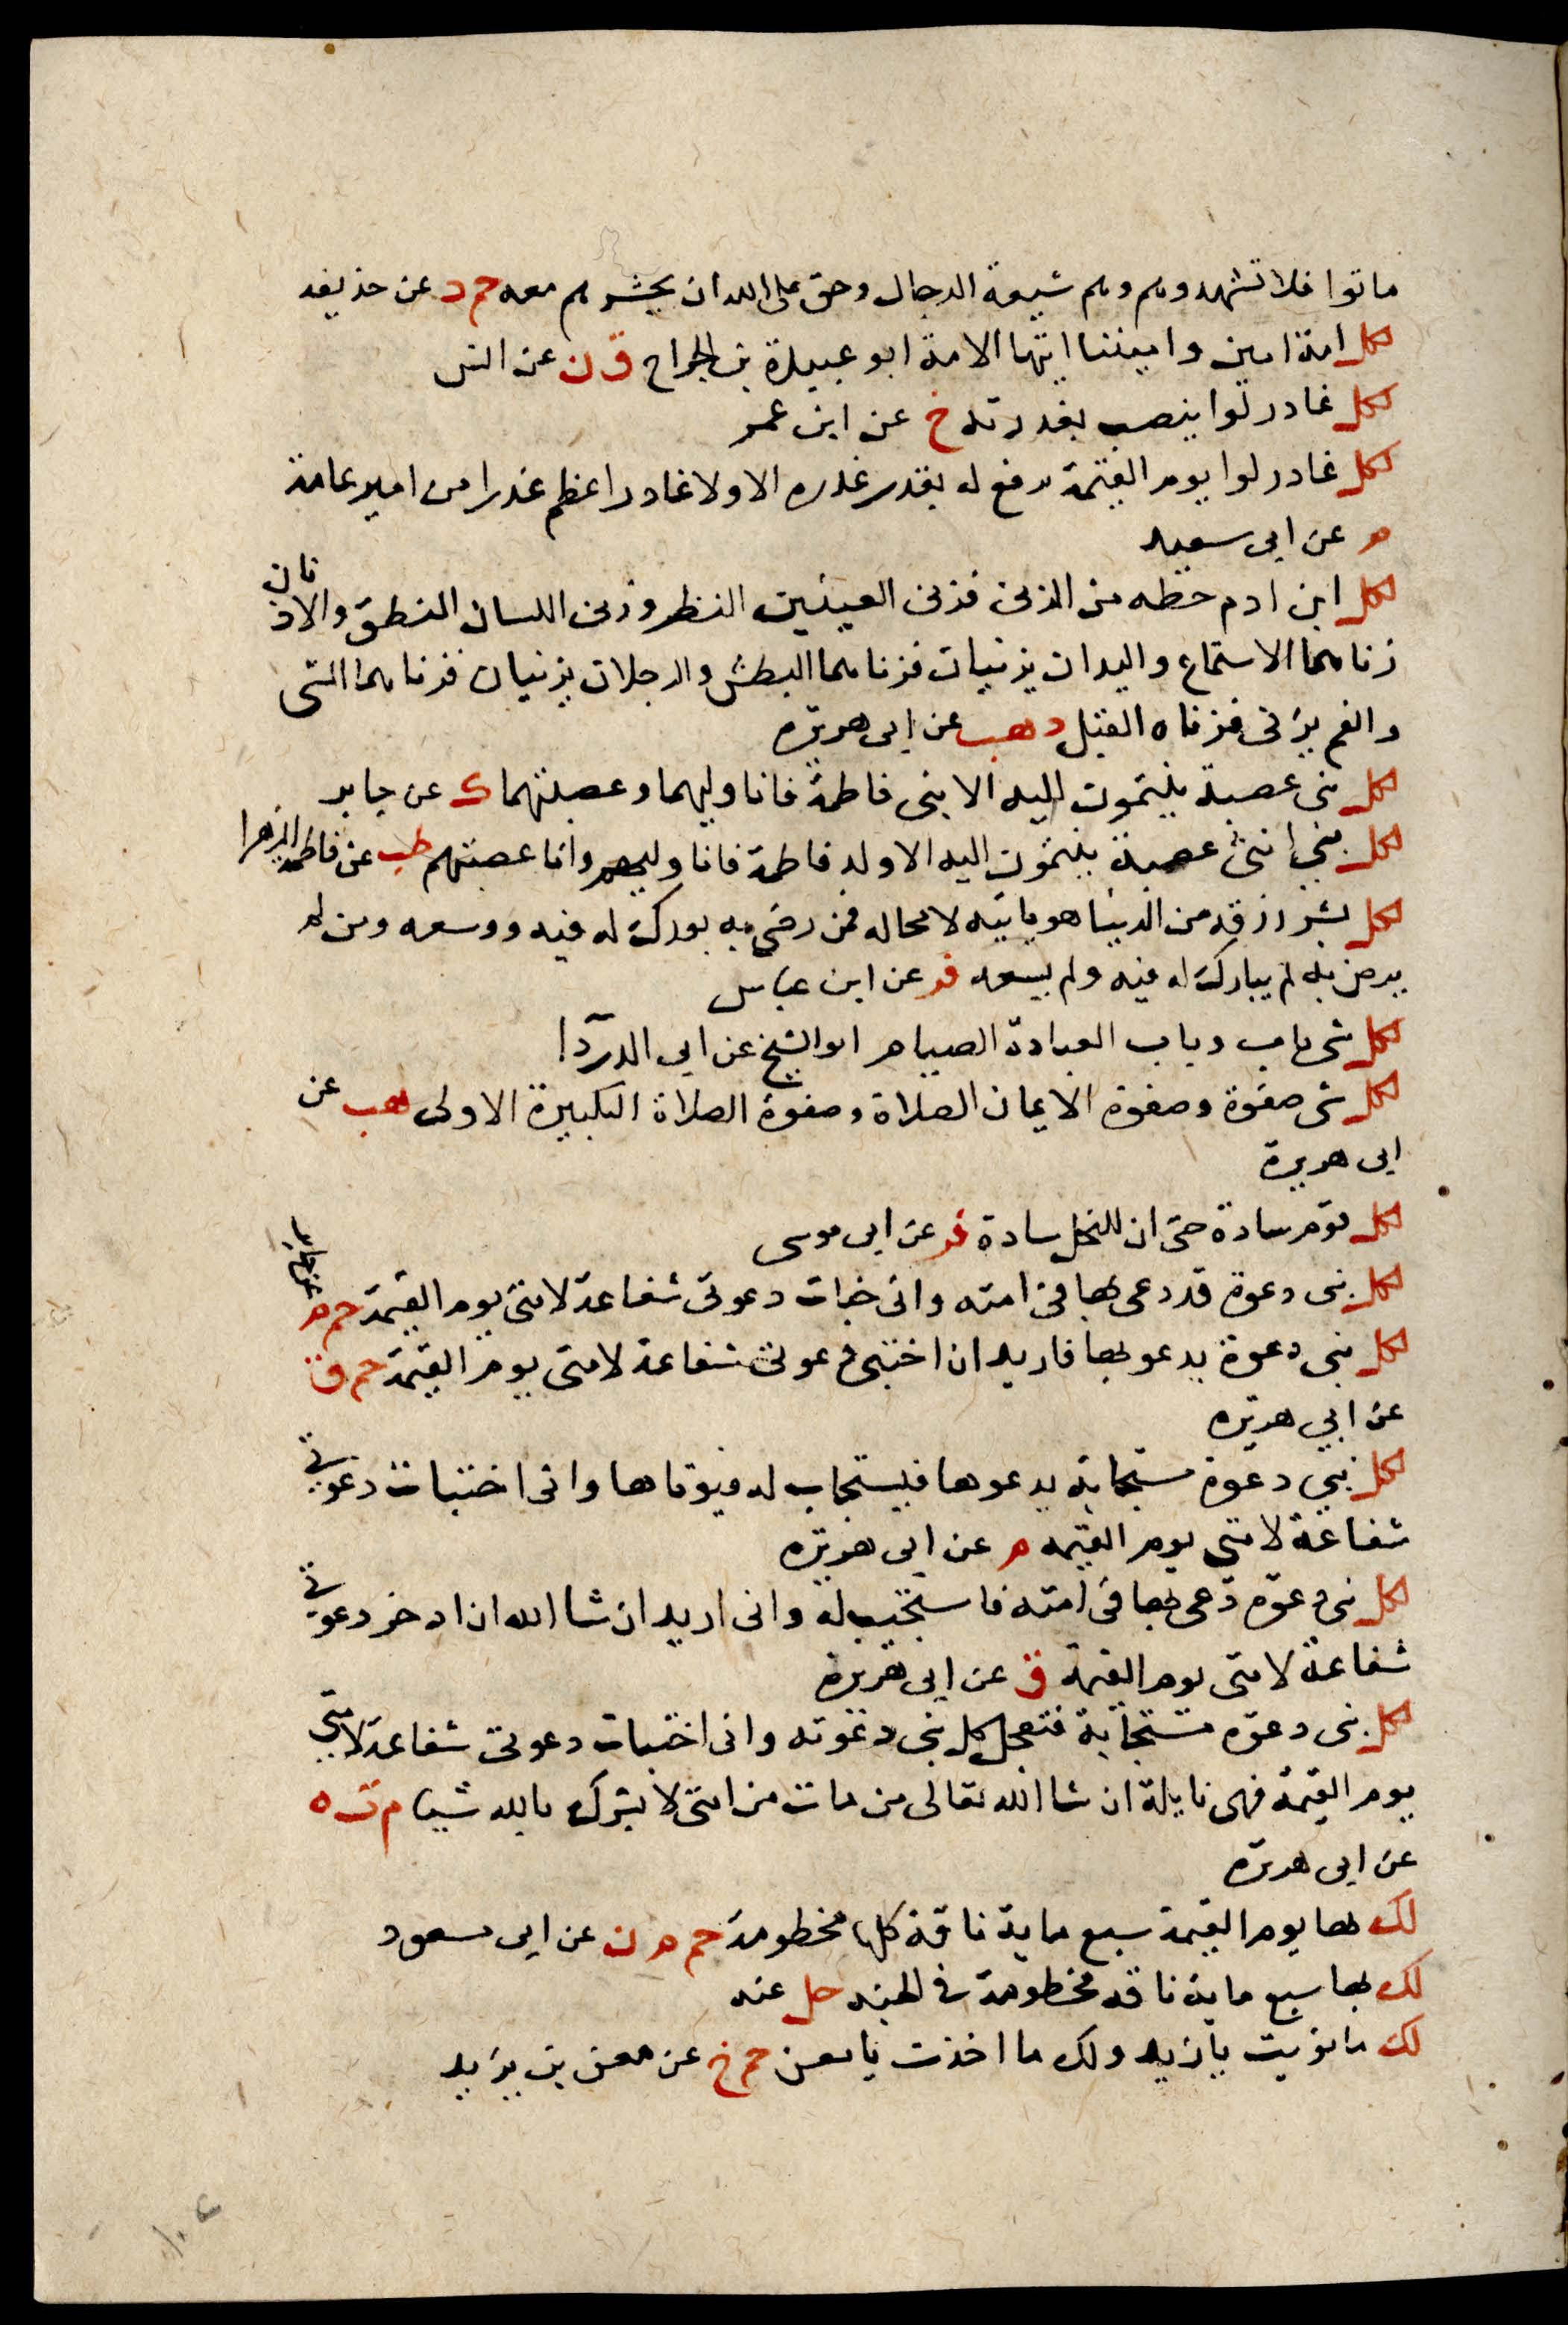 ماتوا فلا تشهدوهم وهم شيعة الدجال وحق على الله ان يحشرهم معه حم د عن حذيفه
لكل امة امين واميننا ايتها الامة ابو عبيدة بن الجراح ق ن عن انس
لكل غادر لوا ينصب بغدرته خ عن ابن عمر
لكل غادر لوا يوم القيمة يرفع له بقدر غدره الا ولا غادر اعظم غدرا من امير عامة
م عن ابى سعيد
لكل ابن ادم حظه من الزنى فزنى العينين النظر وزنى اللسان النطق والاذنان
زناهما الاستماع واليدان يزنيان فزناهما البطش والرجلان يزنيان فزناهما المشى
والفم يزنى فزناه القبل د هب عن ابى هريره
لكل بنى عصبة ينتمون اليه الا بنى فاطمة فانا وليهما وعصبتهما ك عن جابر
لكل بني انثى عصبة ينتمون اليه الا ولد فاطمة فانا وليهم وانا عصبتهم طب عن فاطمة الزهرا
لكل بشر رزقه من الدنيا هو ياتيه لا محاله فمن رضى به بورك له فيه ووسعه ومن لم
يرض به لم يبارك له فيه ولم يسعه فر عن ابن عباس
لكل شى باب وباب العبادة الصيام ابو الشيخ عن ابى الدردا
لكل شى صفوة وصفوة الايمان الصلاة وصفوة الصلاة التكبيرة الاولى هب عن
ابى هريرة
لكل قوم سادة حتى ان للنحل سادة فر عن ابى موسى
لكل نبى دعوة قد دعى بها فى امته وانى خبات دعوتى شفاعة لامتى يوم القيمة حم م عن جابر
لكل نبى دعوة يدعو بها فاريد ان اختبى دعوتى شفاعة لامتى يوم القيمة حم ق
عن ابي هريره
لكل نبي دعوة مستجابة يدعوها فيستجاب له فيوتاها وانى اختبات دعوتى
شفاعة لامتي يوم القيمه م عن ابى هريره
لكل نبى دعوة دعى بها فى امته فاستجيب له وانى اريد ان شا الله ان ادخر دعوتى
شفاعة لامتى يوم القيمة ق عن ابى هريرة
لكل نبى دعوة مستجابة فتعجل كل نبى دعوته وانى اختبات دعوتى شفاعة لامتي
يوم القيمة فهى نايلة ان شا الله تعالى من مات من امتى لا يشرك بالله شيا م ت ه
عن ابى هريره
لك بها يوم القيمة سبع ماية ناقة كلها مخطومة حم م ن عن ابى مسعود
لك بها سبع ماية ناقه مخطومة فى الجنه حل عنه
لك ما نويت يا يزيد ولك ما اخذت يا معن حم خ عن معن بن يزيد